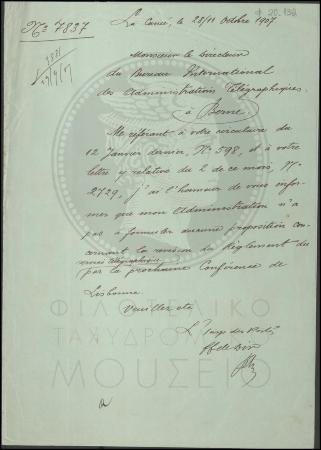 № 7897
20.132
La Canée, le 28/11 Octobre 1907
Monsieur le Directeur
du Bureau International
des Administrations Télégraphiques,
à Berne
Me référant à votre circulaire du
12 Janvier dernier, № 598, et à votre
lettre y relative du 2 de ce mois, №
2729, j'ai l'honneur de vous infor-
mer que mon Administration n'a
pas à formuler aucune proposition con-
cernant la révision du Règlement des
services télégraphiques
par la prochaine Conférence de
Lisbonne.
Veuillez etc
ΦΙΛΟΤΕΛΙΚΟ
ΤΑΧΥΔΡΟΜΙΚΟ
ΜΟΥΣΕΙΟ